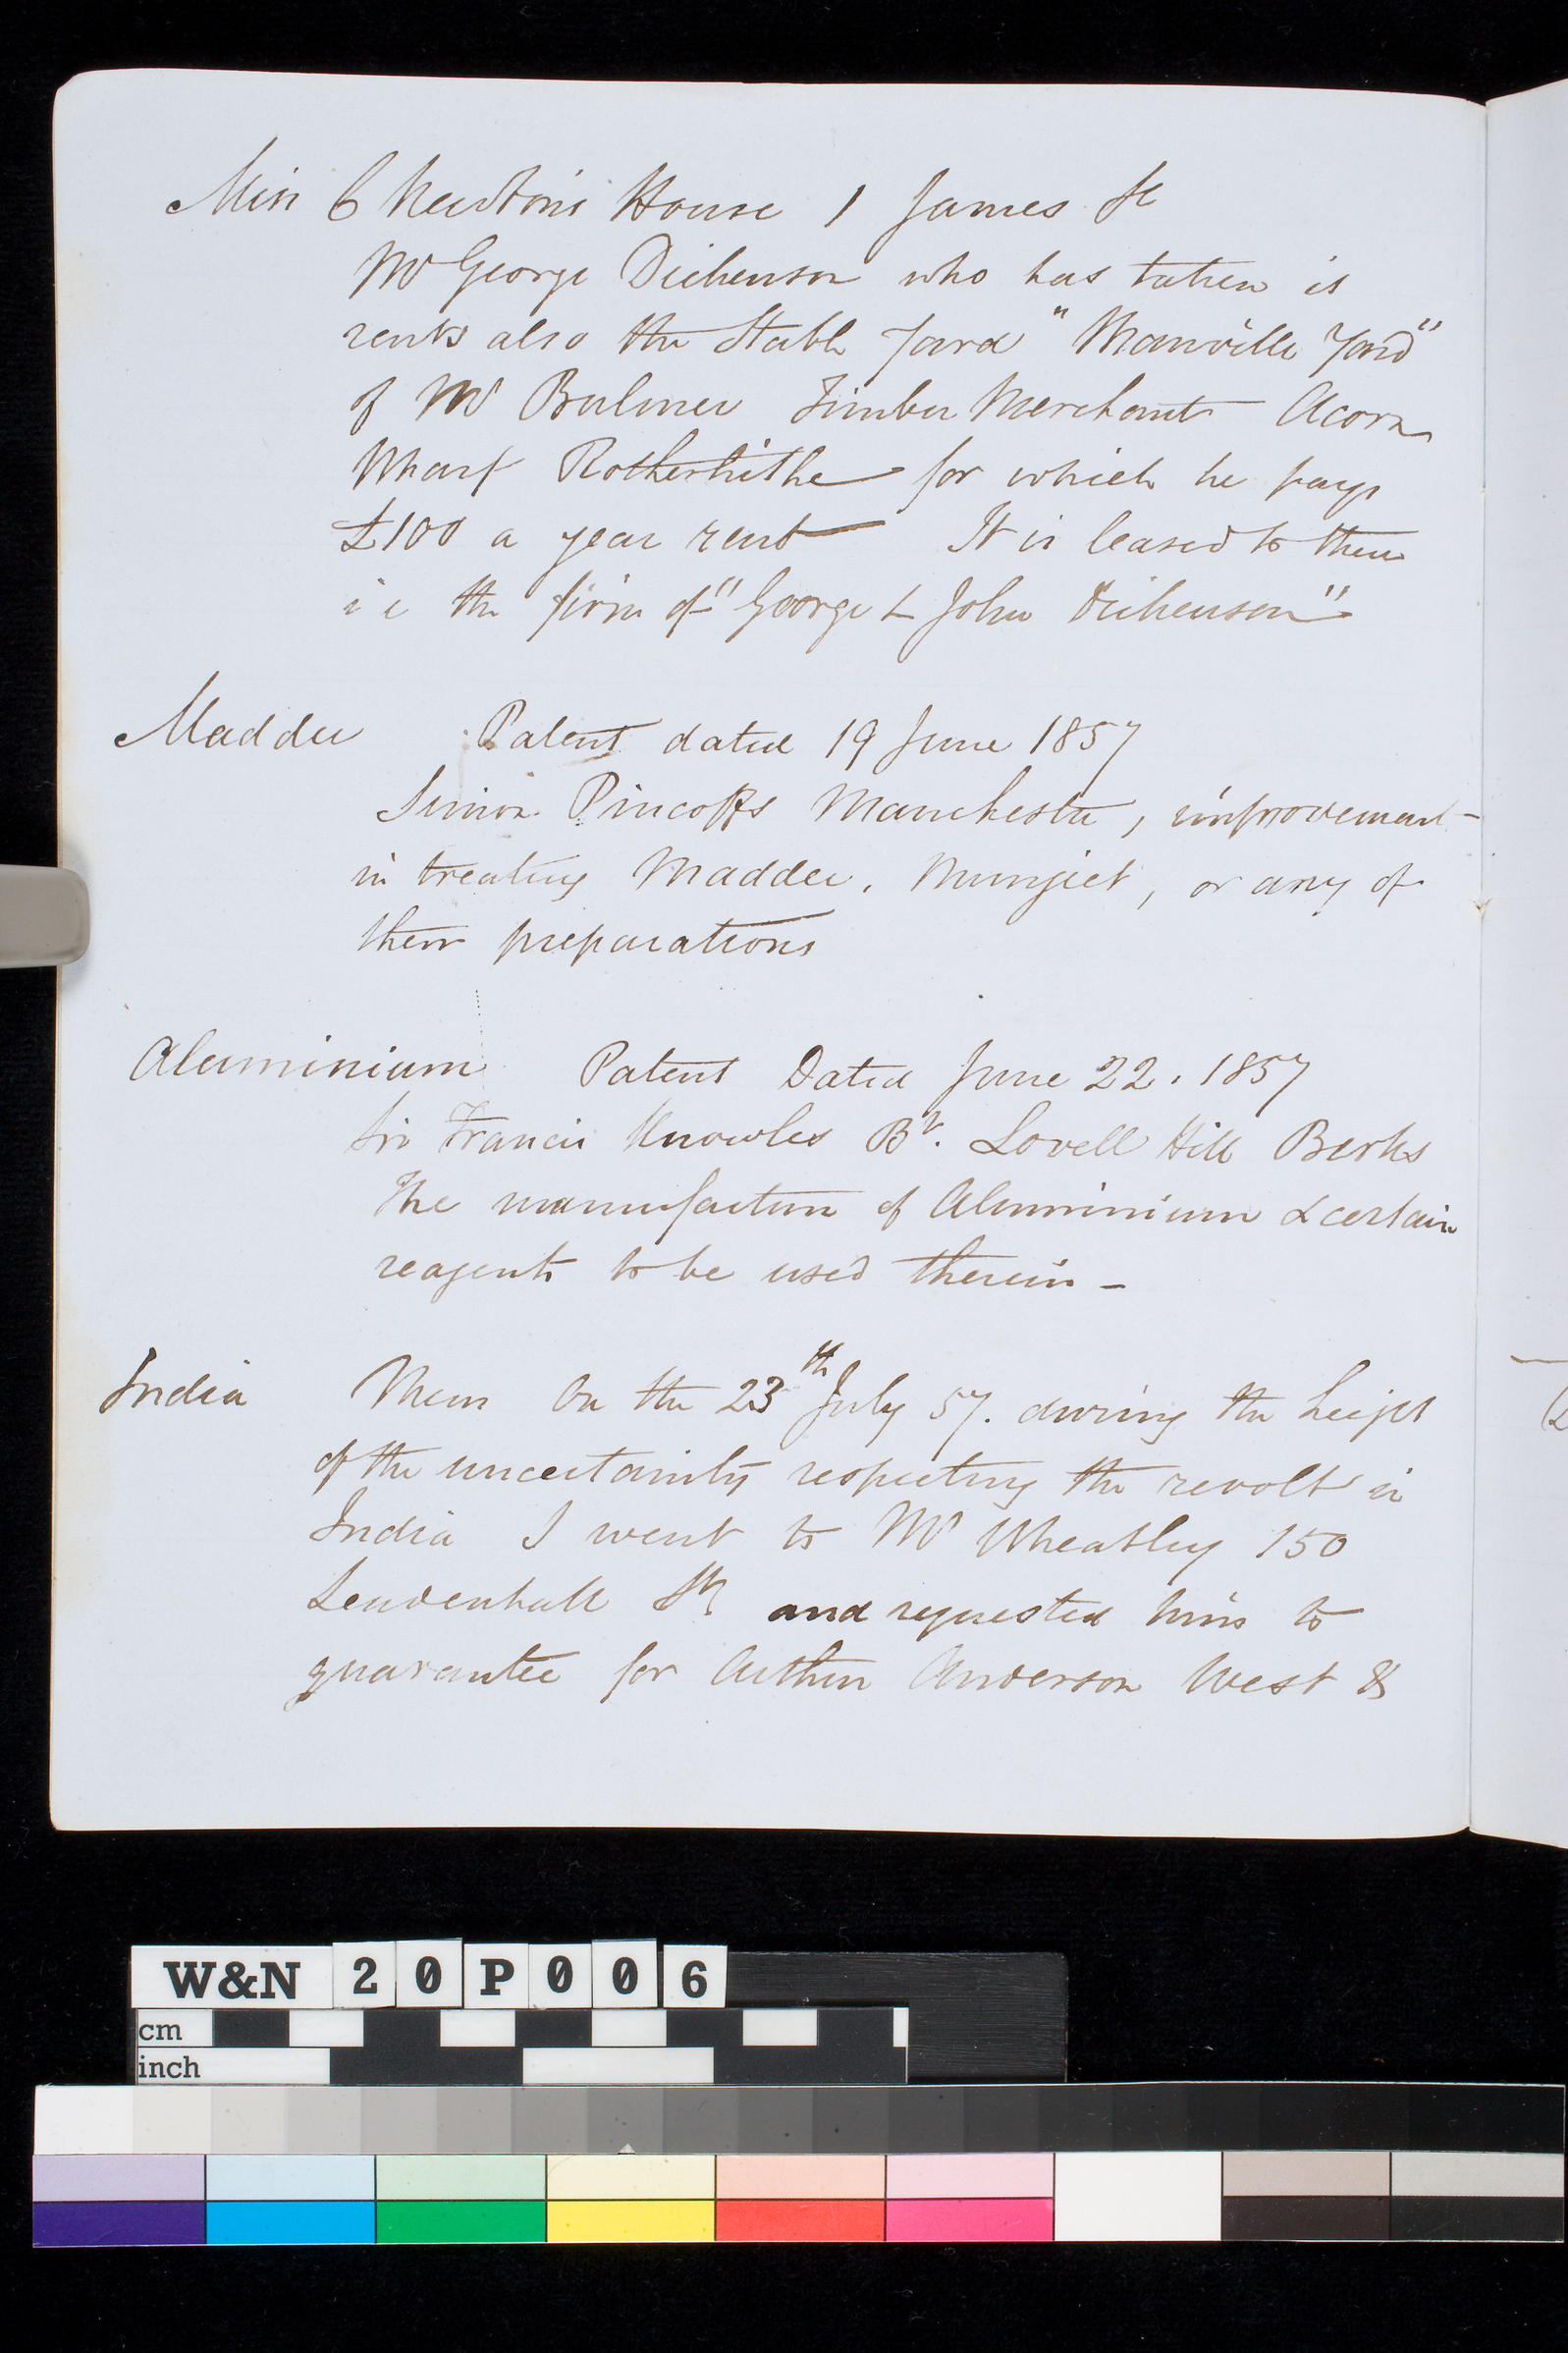 Miss C Newton's House 1 James St
Mr George Dickenson who has taken it
rents also the Stable Yard "Manville Yard"
of Mr Bulmer Timber Merchant Acorn
Wharf Rotherhithe for which he pays
£100 a year rent It is leased to them
i e the firm of "George & John Dickenson"
Madder Patent dated 19 June 1857
Simon Pincoffs Manchester, improvement
in treating Madder, Munjeet, or any of
their preparations
Aluminium Patent Dated June 22. 1857
Sir Francis Knowles Bt. Lovell Hill Berks
The manufacture of Aluminium & certain
reagents to be used therein -
India Mem On the 23th July 57. during the height
of the uncertainty respecting the revolt in
India I went to Mr Wheatley 150
Leadenhall St and requested him to
guarantee for Arthur Anderson West &
W&N 20P006
cm
inch